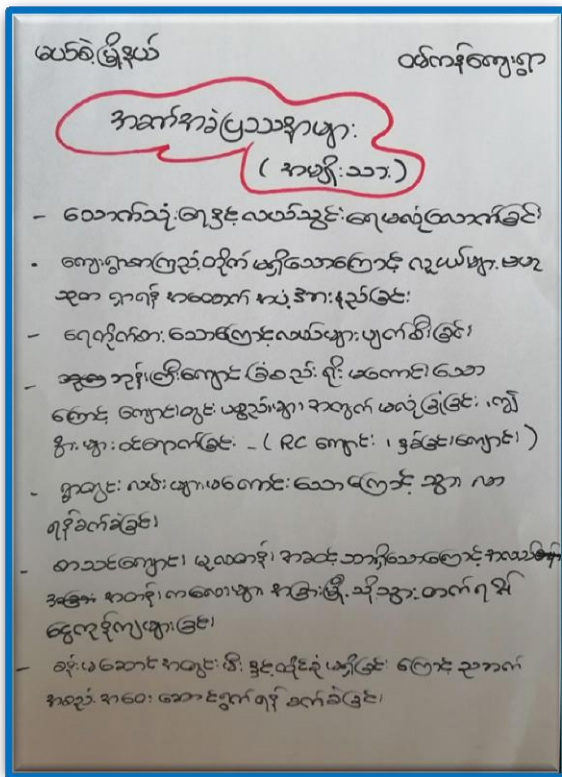 မယ်စဲ့မြို့နယ် ဝမ်ကန်ကျေးရွာ
အခက်အခဲပြဿနာများ
(အမျိုးသား)
- သောက်သုံးရေနှင့် လယ်သွင်းရေမလုံလောက်ခြင်း
- ကျေးရွာစာကြည့်တိုက် မရှိသောကြောင့် လူငယ်များ ဗဟု
သုတ ရှာရန် အထောက် အပံ့အားနည်းခြင်း
- ရေတိုက်စားသောကြောင့် လယ်များပျက်စီးခြင်း
- ဘုန်းကြီးကျောင်း ခြံစည်းရိုး မကောင်းသော
ကြောင့် ကျောင်းတွင်း ပစ္စည်းများ အတွက် မလုံခြုံခြင်း၊ ကျွဲ
နွားများ ဝင်ရောက်ခြင်း - (RC ကျောင်း၊ နှစ်ခြင်းကျောင်း)
- ရွာတွင်း လမ်းများမကောင်းသောကြောင့် သွားလာ
ရန်ခက်ခဲခြင်း
- စာသင်ကျောင်း မူလတန်း အဆင့်သာရှိသောကြောင့် အလယ်
အတန်းကလေးများ အခြားမြို့သို့သွားတက်ရ၍
ငွေကုန်ကျများခြင်း
- ခန်းမဆောင်အတွင်း မီးနှင့်ထိုင်ခုံ မရှိခြင်းကြောင့် ညဘက်
အစည်းအဝေး ဆောင်ရွက်ရန် ခက်ခဲခြင်း